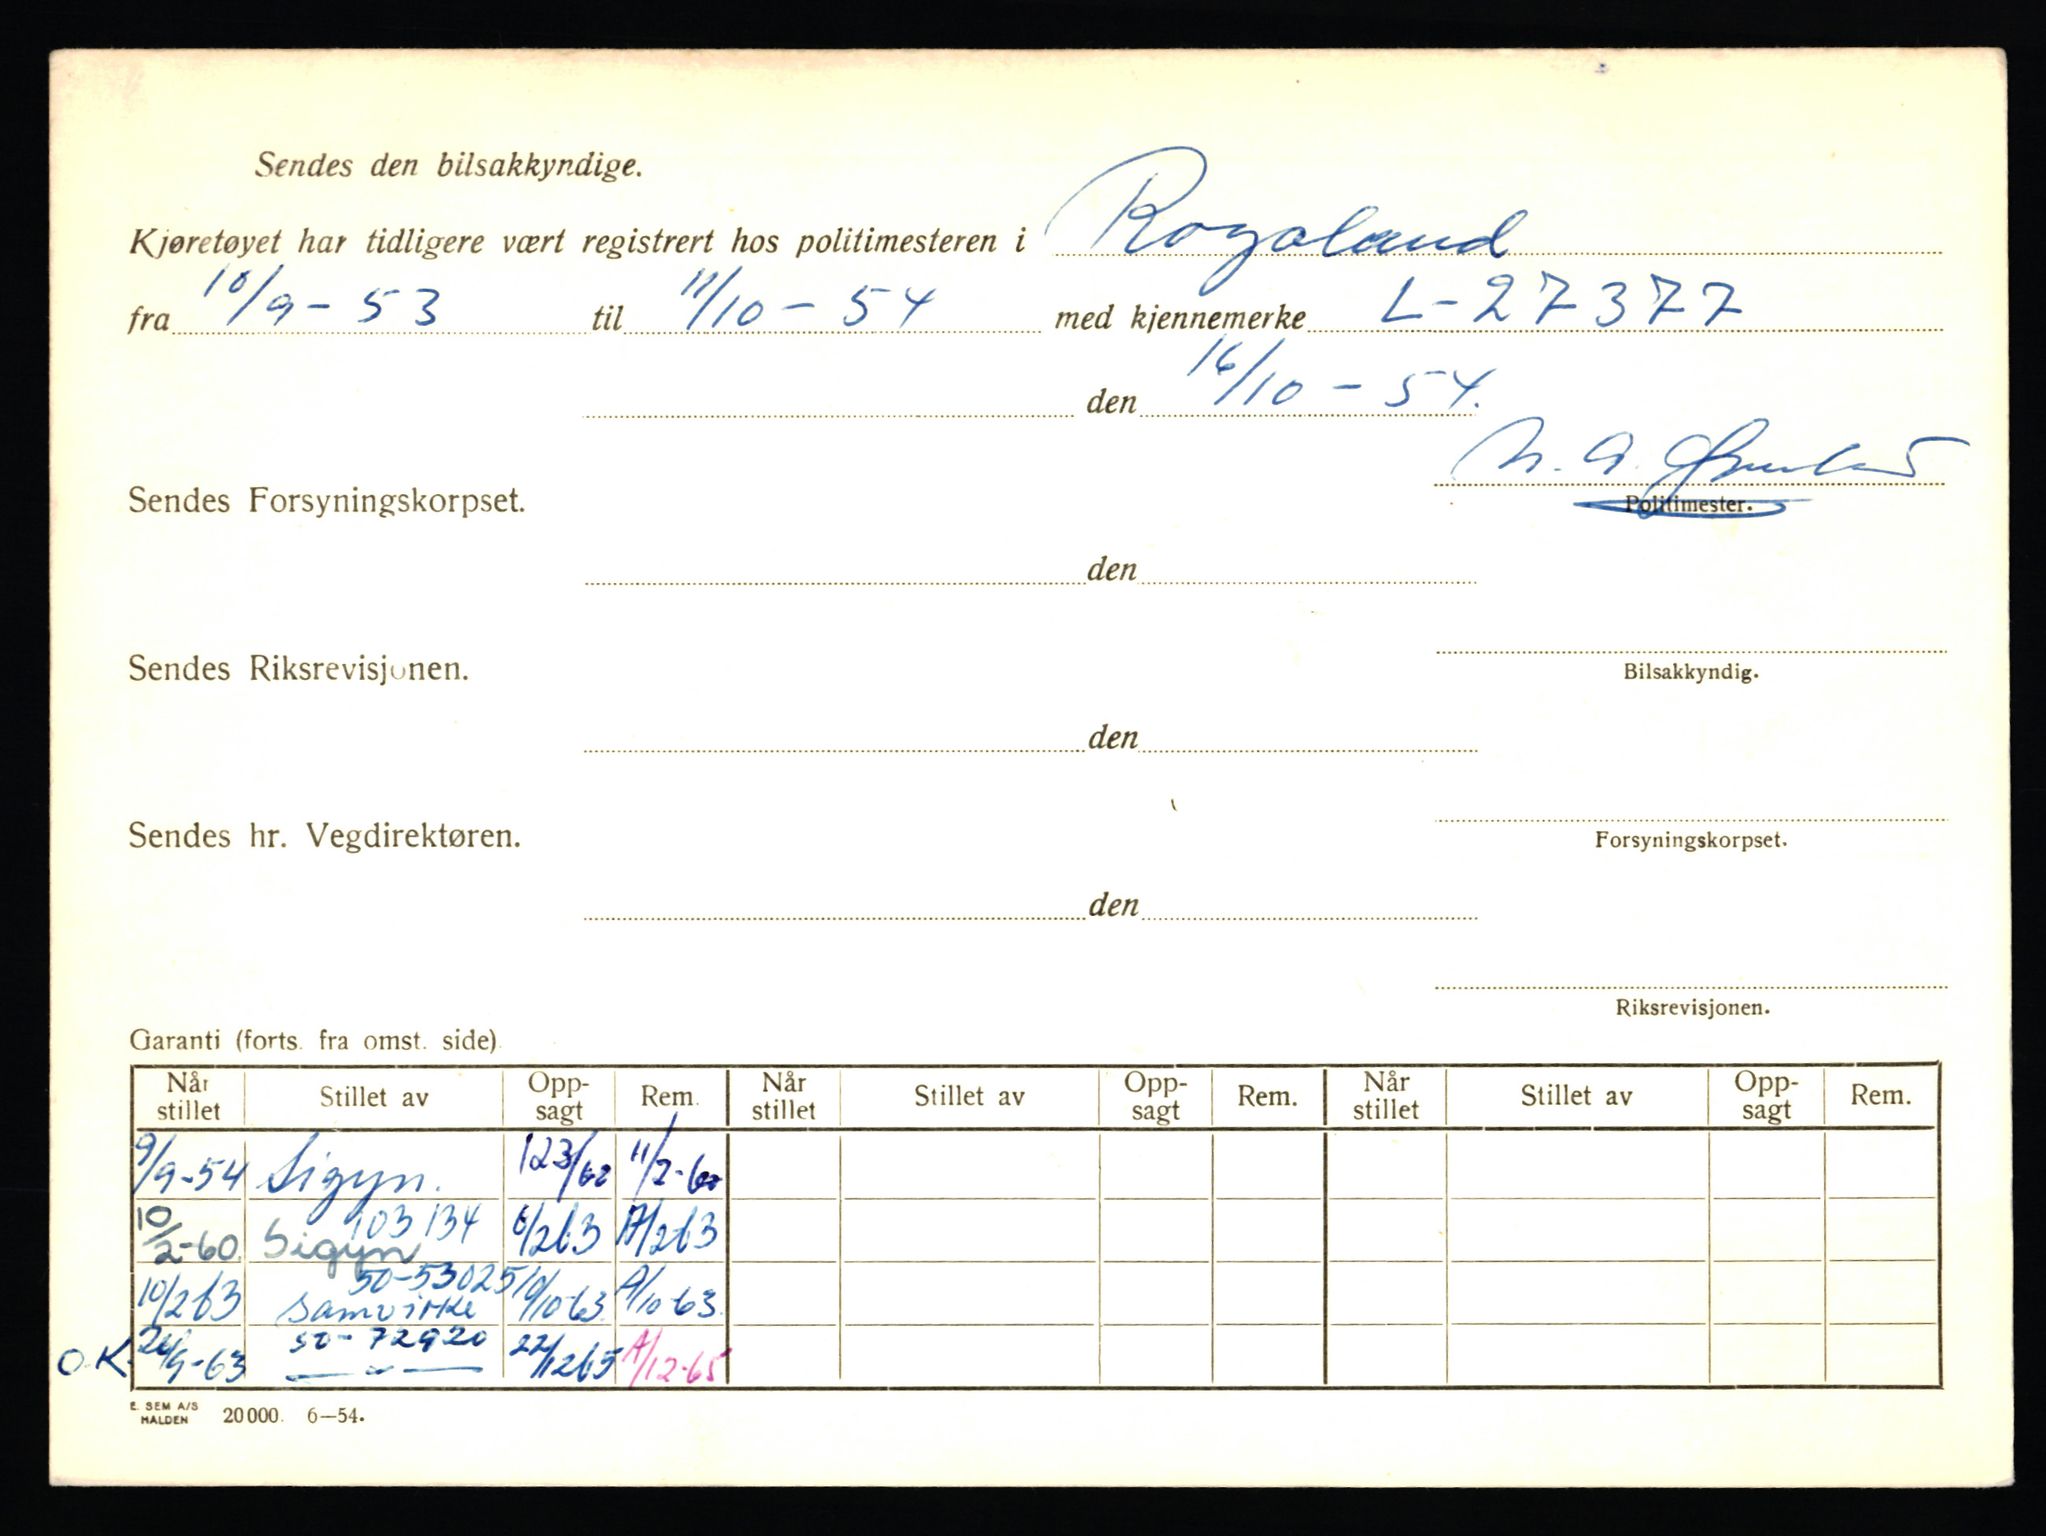 Sendes den bilsakkyndige.
Kjøretøyet har tidligere vært registrert hos politimesteren i Rogaland
fra 10/9-53 til 11/10-54 med kjennemerke L-27377
den 16/10-54.
Sendes Forsyningskorpset.
Politimester.
den
Sendes Riksrevisjonen.
Bilsakkyndig.
den
Sendes hr. Vegdirektøren.
Forsyningskorpset.
den
Riksrevisjonen.
Garanti (forts. fra omst. side)
Når stillet Stillet av Opp-sagt Rem. Når stillet Stillet av Opp-sagt Rem. Når stillet Stillet av Opp-sagt Rem.
9/9-54 Sigyn. 11/2-60
103134
10/2-60 Sigyn 6/263 A/263
50-53025
10/263 Samvirke 10/10-63 A/10-63
50-72920
O.K. 24/9-63 — " — 22/1265 A/12-65
E. SEM A/S
HALDEN 20000. 6—54.